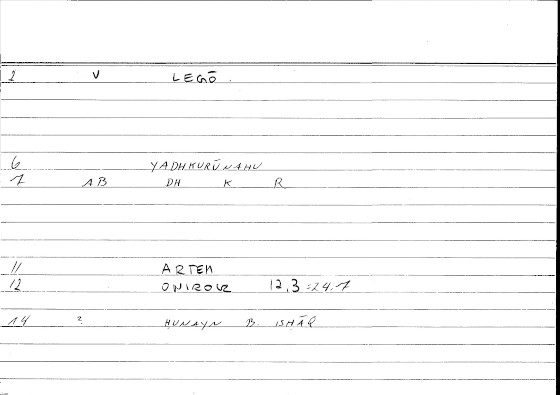 2 V LEGŌ.
6 YADHKURŪNAHU
7 AB DH K R
11 ARTEM
12 ONIROCR 12.3=24.7
14 ? HUNAYN B. ISHĀQ